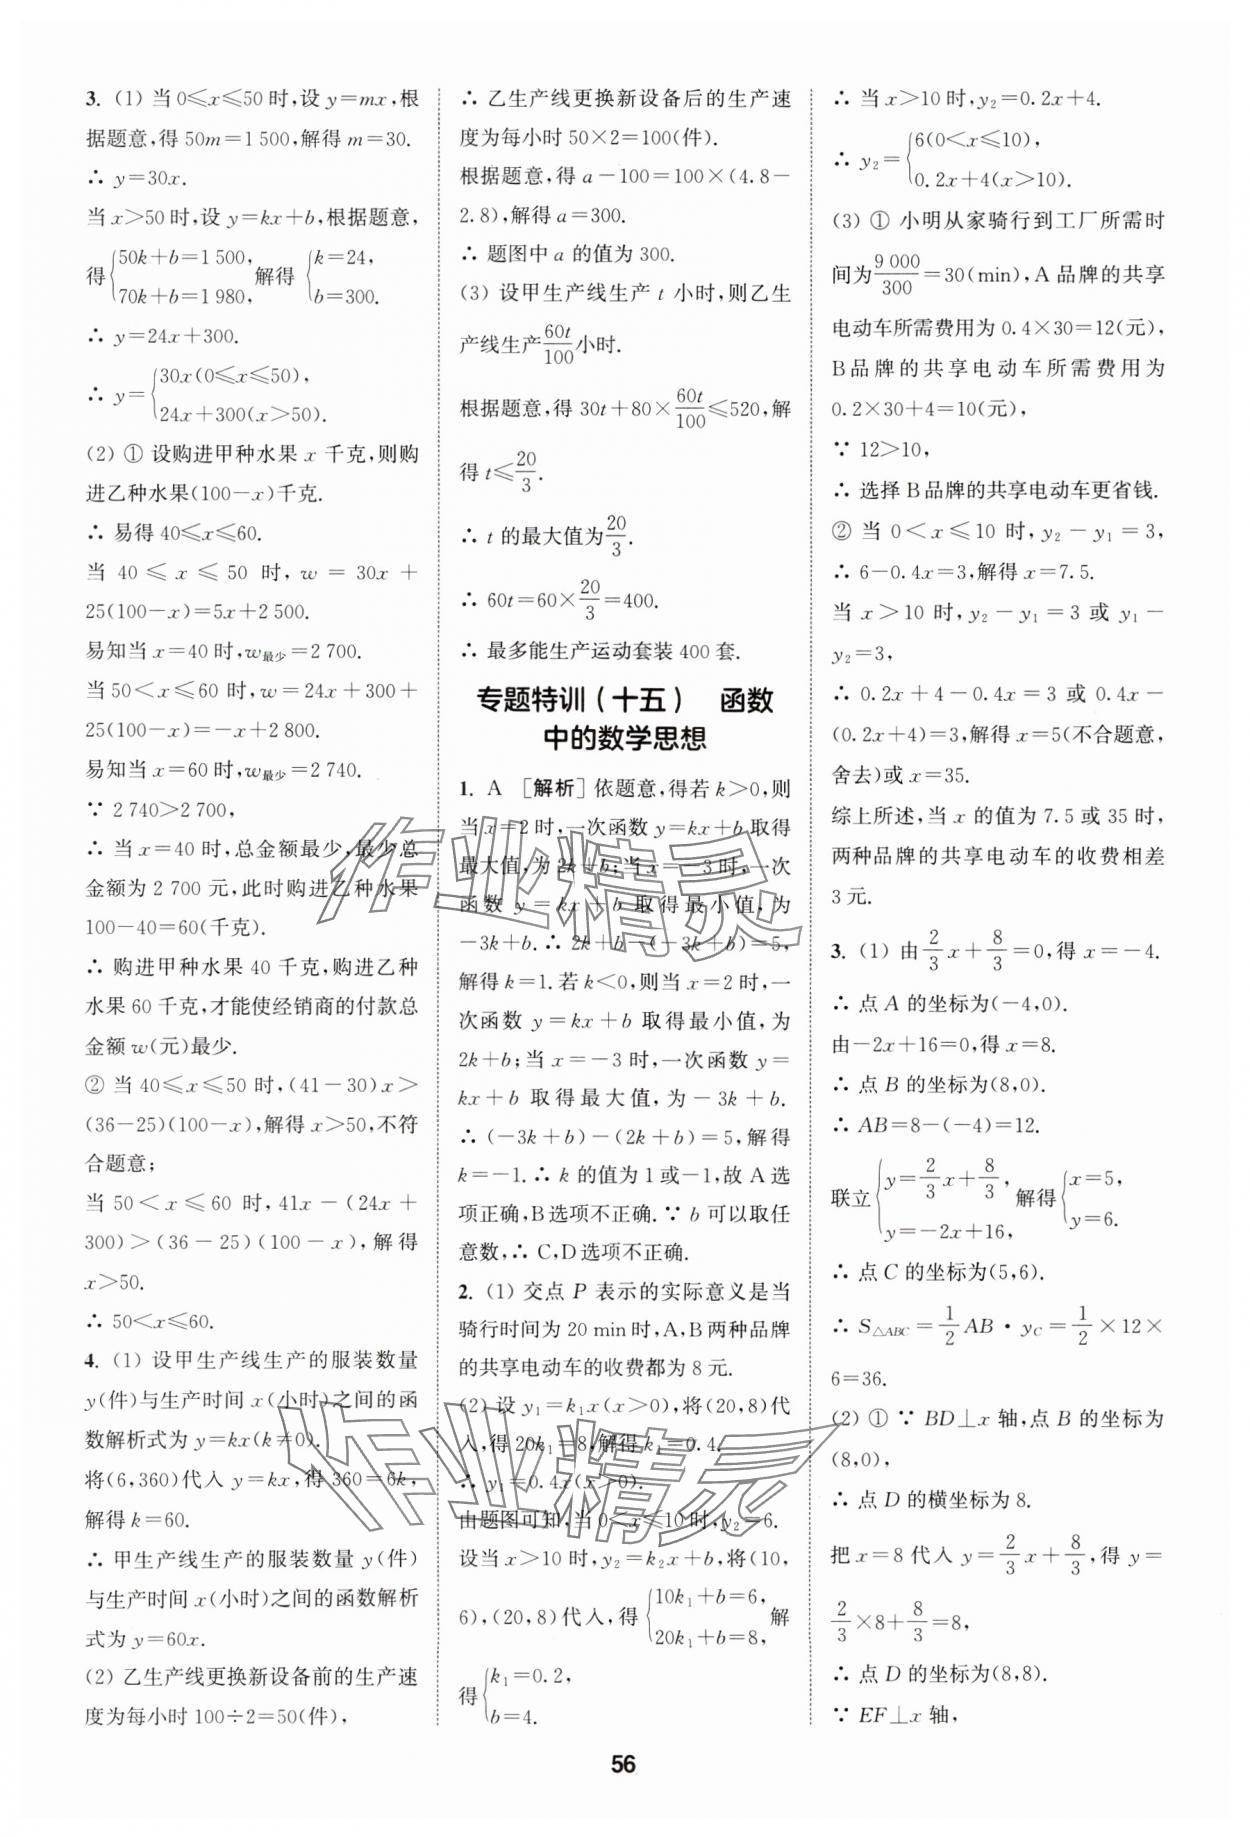 3. (1) 当 0≤x≤50 时,设 y=mx,根
据题意,得 50m=1 500,解得 m=30.
∴ y=30x.
当 x>50 时,设 y=kx+b,根据题意,
得{50k+b=1 500, 70k+b=1 980, 解得 {k=24, b=300.
∴ y=24x+300.
∴ y={30x(0≤x≤50), 24x+300(x>50).
(2) ① 设购进甲种水果 x 千克,则购
进乙种水果(100-x)千克.
∴ 易得 40≤x≤60.
当 40 ≤ x ≤ 50 时, w = 30x +
25(100-x)=5x+2 500.
易知当 x=40 时,w最少=2 700.
当 50<x≤60 时,w=24x+300+
25(100-x)=-x+2 800.
易知当 x=60 时,w最少=2 740.
∵ 2 740>2 700,
∴ 当 x=40 时,总金额最少,最少总
金额为 2 700 元,此时购进乙种水果
100-40=60(千克).
∴ 购进甲种水果 40 千克,购进乙种
水果 60 千克,才能使经销商的付款总
金额 w(元)最少.
② 当 40≤x≤50 时,(41-30)x>
(36-25)(100-x),解得 x>50,不符
合题意;
当 50<x≤60 时,41x-(24x+
300)>(36-25)(100-x),解得
x>50.
∴ 50<x≤60.
4. (1) 设甲生产线生产的服装数量
y(件)与生产时间 x(小时)之间的函
数解析式为 y=kx(k≠0).
将(6,360)代入 y=kx,得 360=6k,
解得 k=60.
∴ 甲生产线生产的服装数量 y(件)
与生产时间 x(小时)之间的函数解析
式为 y=60x.
(2) 乙生产线更换新设备前的生产速
度为每小时 100÷2=50(件),
∴ 乙生产线更换新设备后的生产速
度为每小时 50×2=100(件).
根据题意,得 a-100=100×(4.8-
2.8),解得 a=300.
∴ 题图中 a 的值为 300.
(3) 设甲生产线生产 t 小时,则乙生
产线生产60t/100小时.
根据题意,得 30t+80×60t/100≤520,解
得 t≤20/3.
∴ t 的最大值为20/3.
∴ 60t=60×20/3=400.
∴ 最多能生产运动套装 400 套.
专题特训(十五) 函数
中的数学思想
1. A [解析]依题意,得若 k>0,则
当 x=2 时,一次函数 y=kx+b 取得
最大值,为 2k+b;当 x=-3 时,一次
函数 y=kx+b 取得最小值,为
-3k+b.∴ 2k+b-(-3k+b)=5,
解得 k=1.若 k<0,则当 x=2 时,一
次函数 y=kx+b 取得最小值,为
2k+b;当 x=-3 时,一次函数 y=
kx+b 取得最大值,为-3k+b.
∴ (-3k+b)-(2k+b)=5,解得
k=-1.∴ k 的值为 1 或-1,故 A 选
项正确,B选项不正确.∵ b 可以取任
意数,∴ C,D选项不正确.
2. (1) 交点 P 表示的实际意义是当
骑行时间为 20 min时,A,B 两种品牌
的共享电动车的收费都为 8 元.
(2) 设 y₁=k₁x(x>0),将(20,8)代
入,得 20k₁=8,解得 k₁=0.4.
∴ y₁=0.4x(x>0).
由题图可知,当 0<x≤10 时,y₂=6.
设当 x>10 时,y₂=k₂x+b,将(10,
6),(20,8)代入,得{10k₁+b=6, 20k₁+b=8, 解
得{k₁=0.2, b=4.
∴ 当 x>10 时,y₂=0.2x+4.
∴ y₂={6(0<x≤10), 0.2x+4(x>10).
(3) ① 小明从家骑行到工厂所需时
间为9 000/300=30(min),A 品牌的共享
电动车所需费用为 0.4×30=12(元),
B品牌的共享电动车所需费用为
0.2×30+4=10(元),
∵ 12>10,
∴ 选择 B品牌的共享电动车更省钱.
② 当 0<x≤10 时,y₂-y₁=3,
∴ 6-0.4x=3,解得 x=7.5.
当 x>10 时,y₂-y₁=3 或 y₁-
y₂=3,
∴ 0.2x+4-0.4x=3 或 0.4x-
(0.2x+4)=3,解得 x=5(不合题意,
舍去)或 x=35.
综上所述,当 x 的值为 7.5 或 35 时,
两种品牌的共享电动车的收费相差
3 元.
3. (1) 由2/3x+8/3=0,得 x=-4.
∴ 点 A 的坐标为(-4,0).
由-2x+16=0,得 x=8.
∴ 点 B 的坐标为(8,0).
∴ AB=8-(-4)=12.
联立{y=2/3x+8/3, y=-2x+16, 解得{x=5, y=6.
∴ 点 C 的坐标为(5,6).
∴ S△ABC=1/2AB·yC=1/2×12×
6=36.
(2) ① ∵ BD⊥x 轴,点 B 的坐标为
(8,0),
∴ 点 D 的横坐标为 8.
把 x=8 代入 y=2/3x+8/3,得 y=
2/3×8+8/3=8,
∴ 点 D 的坐标为(8,8).
∵ EF⊥x 轴,
56
作业精灵
作业精灵